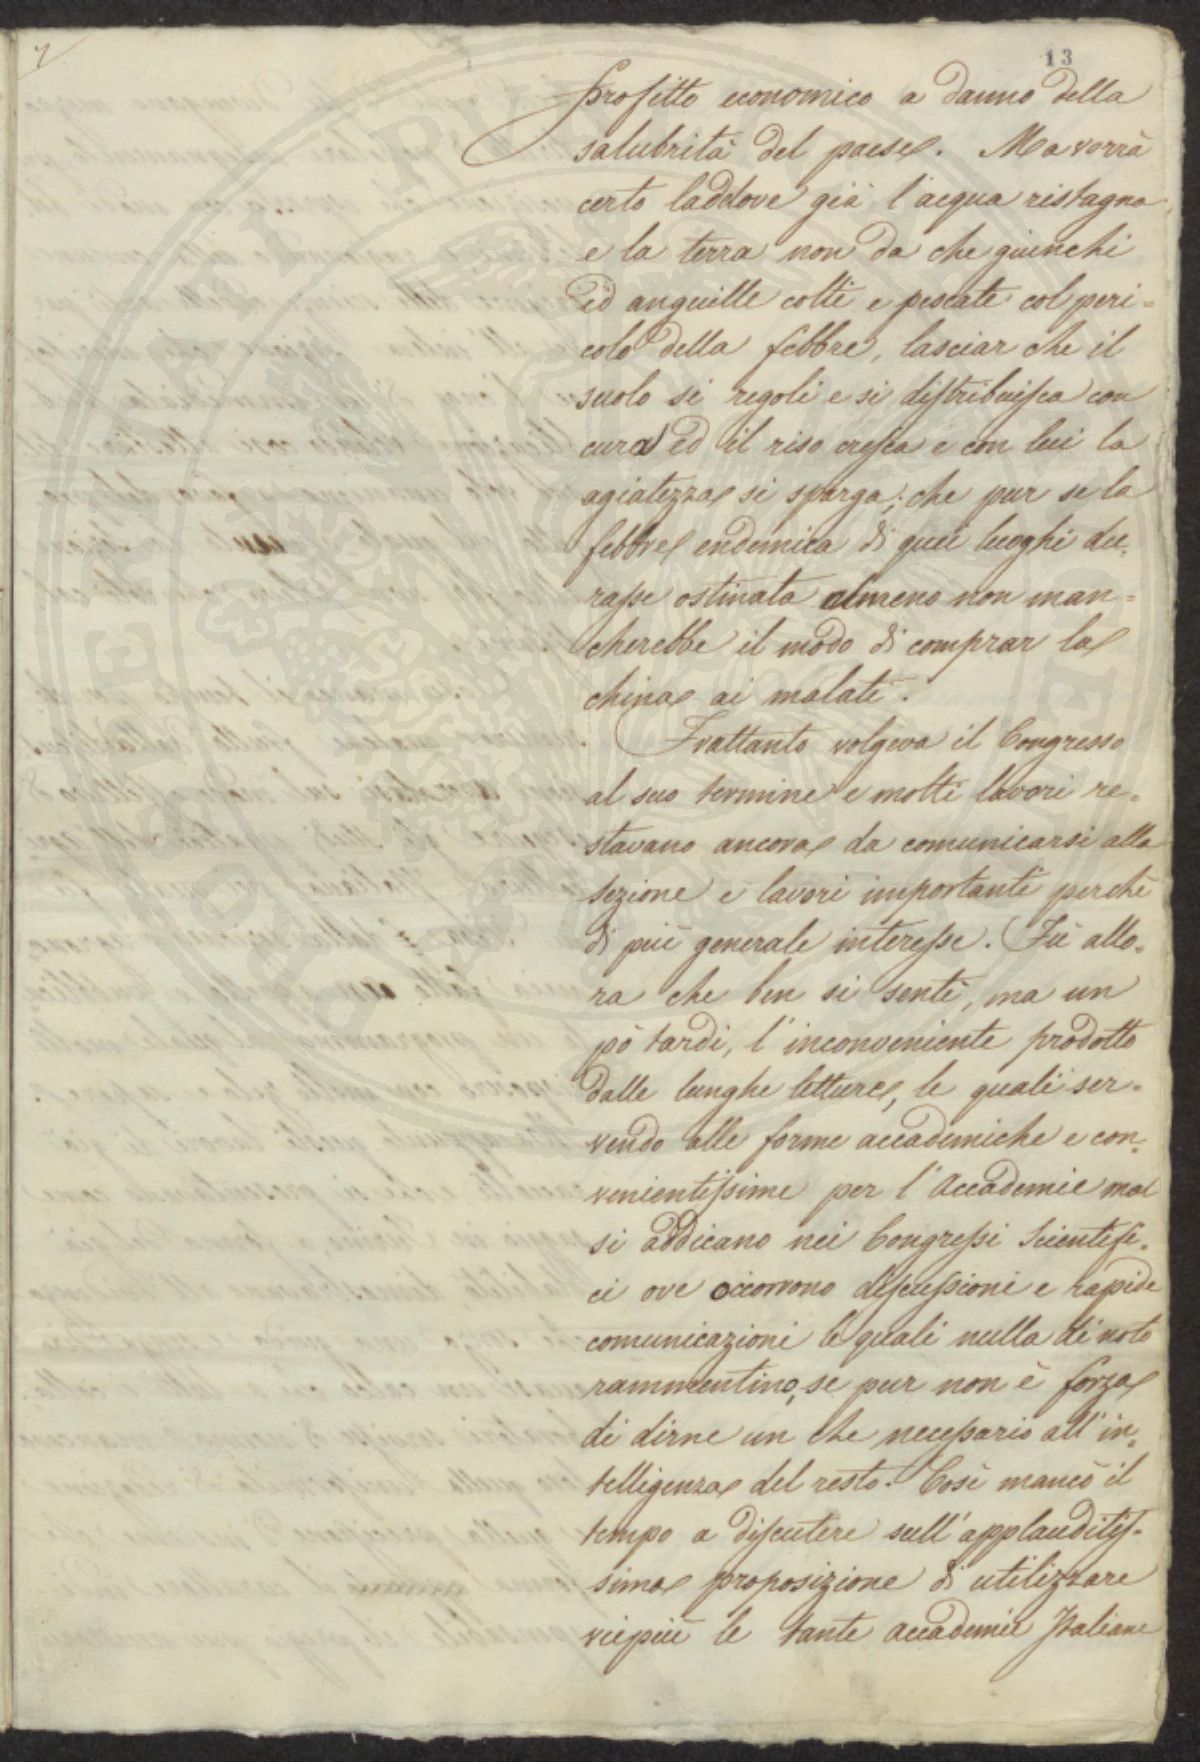 7
13
profitto economico a danno della
salubrità del paese. Ma vorrà
certo laddove già l'acqua ristagna
e la terra non da che giunchi
ed anguille colti e pescate col peri=
colo della febbre, lasciar che il
suolo si regoli e si distribuisca con
cura ed il riso cresca e con lui la
agiatezza si sparga; che pur se la
febbre endemica di quei luoghi du=
rasse ostinata almeno non man=
cherebbe il modo di comprar la
china ai malati.
Frattanto volgeva il Congresso
al suo termine e molti lavori re=
stavano ancora da comunicarsi alla
sezione e lavori importanti perchè
di più generale interesse. Fù allo=
ra che ben si sentì, ma un
pò tardi, l'inconveniente prodotto
dalle lunghe letture, le quali ser=
vendo alle forme accademiche e con=
venientissime per l'Accademie mal
si addicano nei Congressi Scientifi=
ci ove occorrono discussioni e rapide
comunicazioni le quali nulla di noto
rammentino, se pur non è forza
di dirne un che necessario all'in=
telligenza del resto. Così mancò il
tempo a discutere sull'applauditis=
sima proposizione di utilizzare
viepiù le tante accademie Italiane